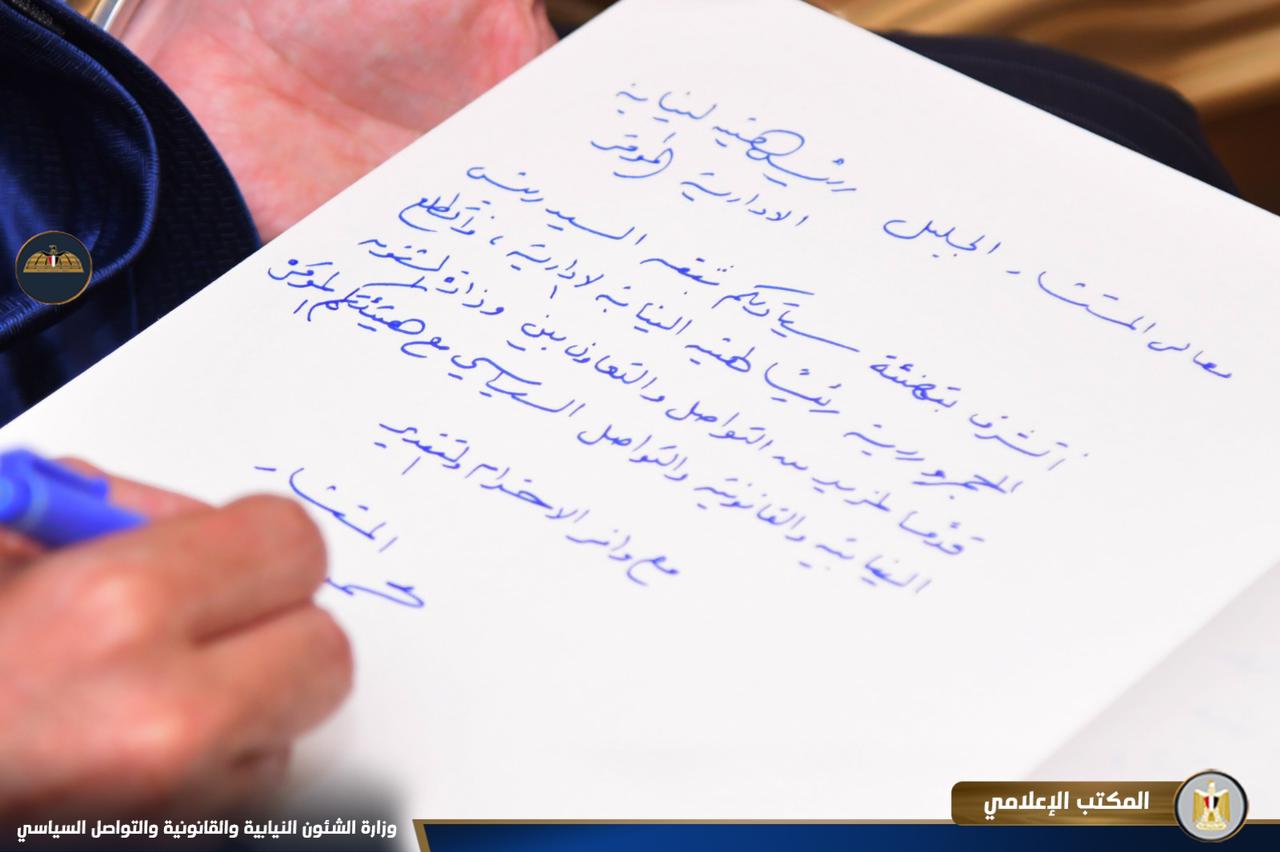 معالى المستشار الجليل رئيس هيئة النيابة
الادارية الموقر
أتشرف بتهنئة سيادتكم بثقة السيد رئيس
الجمهورية رئيسًا لهيئة النيابة الادارية، وأتطلع
قدمًا لمزيد من التواصل والتعاون بين وزارة الشئون
النيابية والقانونية والتواصل السياسي مع هيئتكم الموقرة
مع وافر الاحترام والتقدير
المستشار
محمد
المكتب الإعلامي
وزارة الشئون النيابية والقانونية والتواصل السياسي